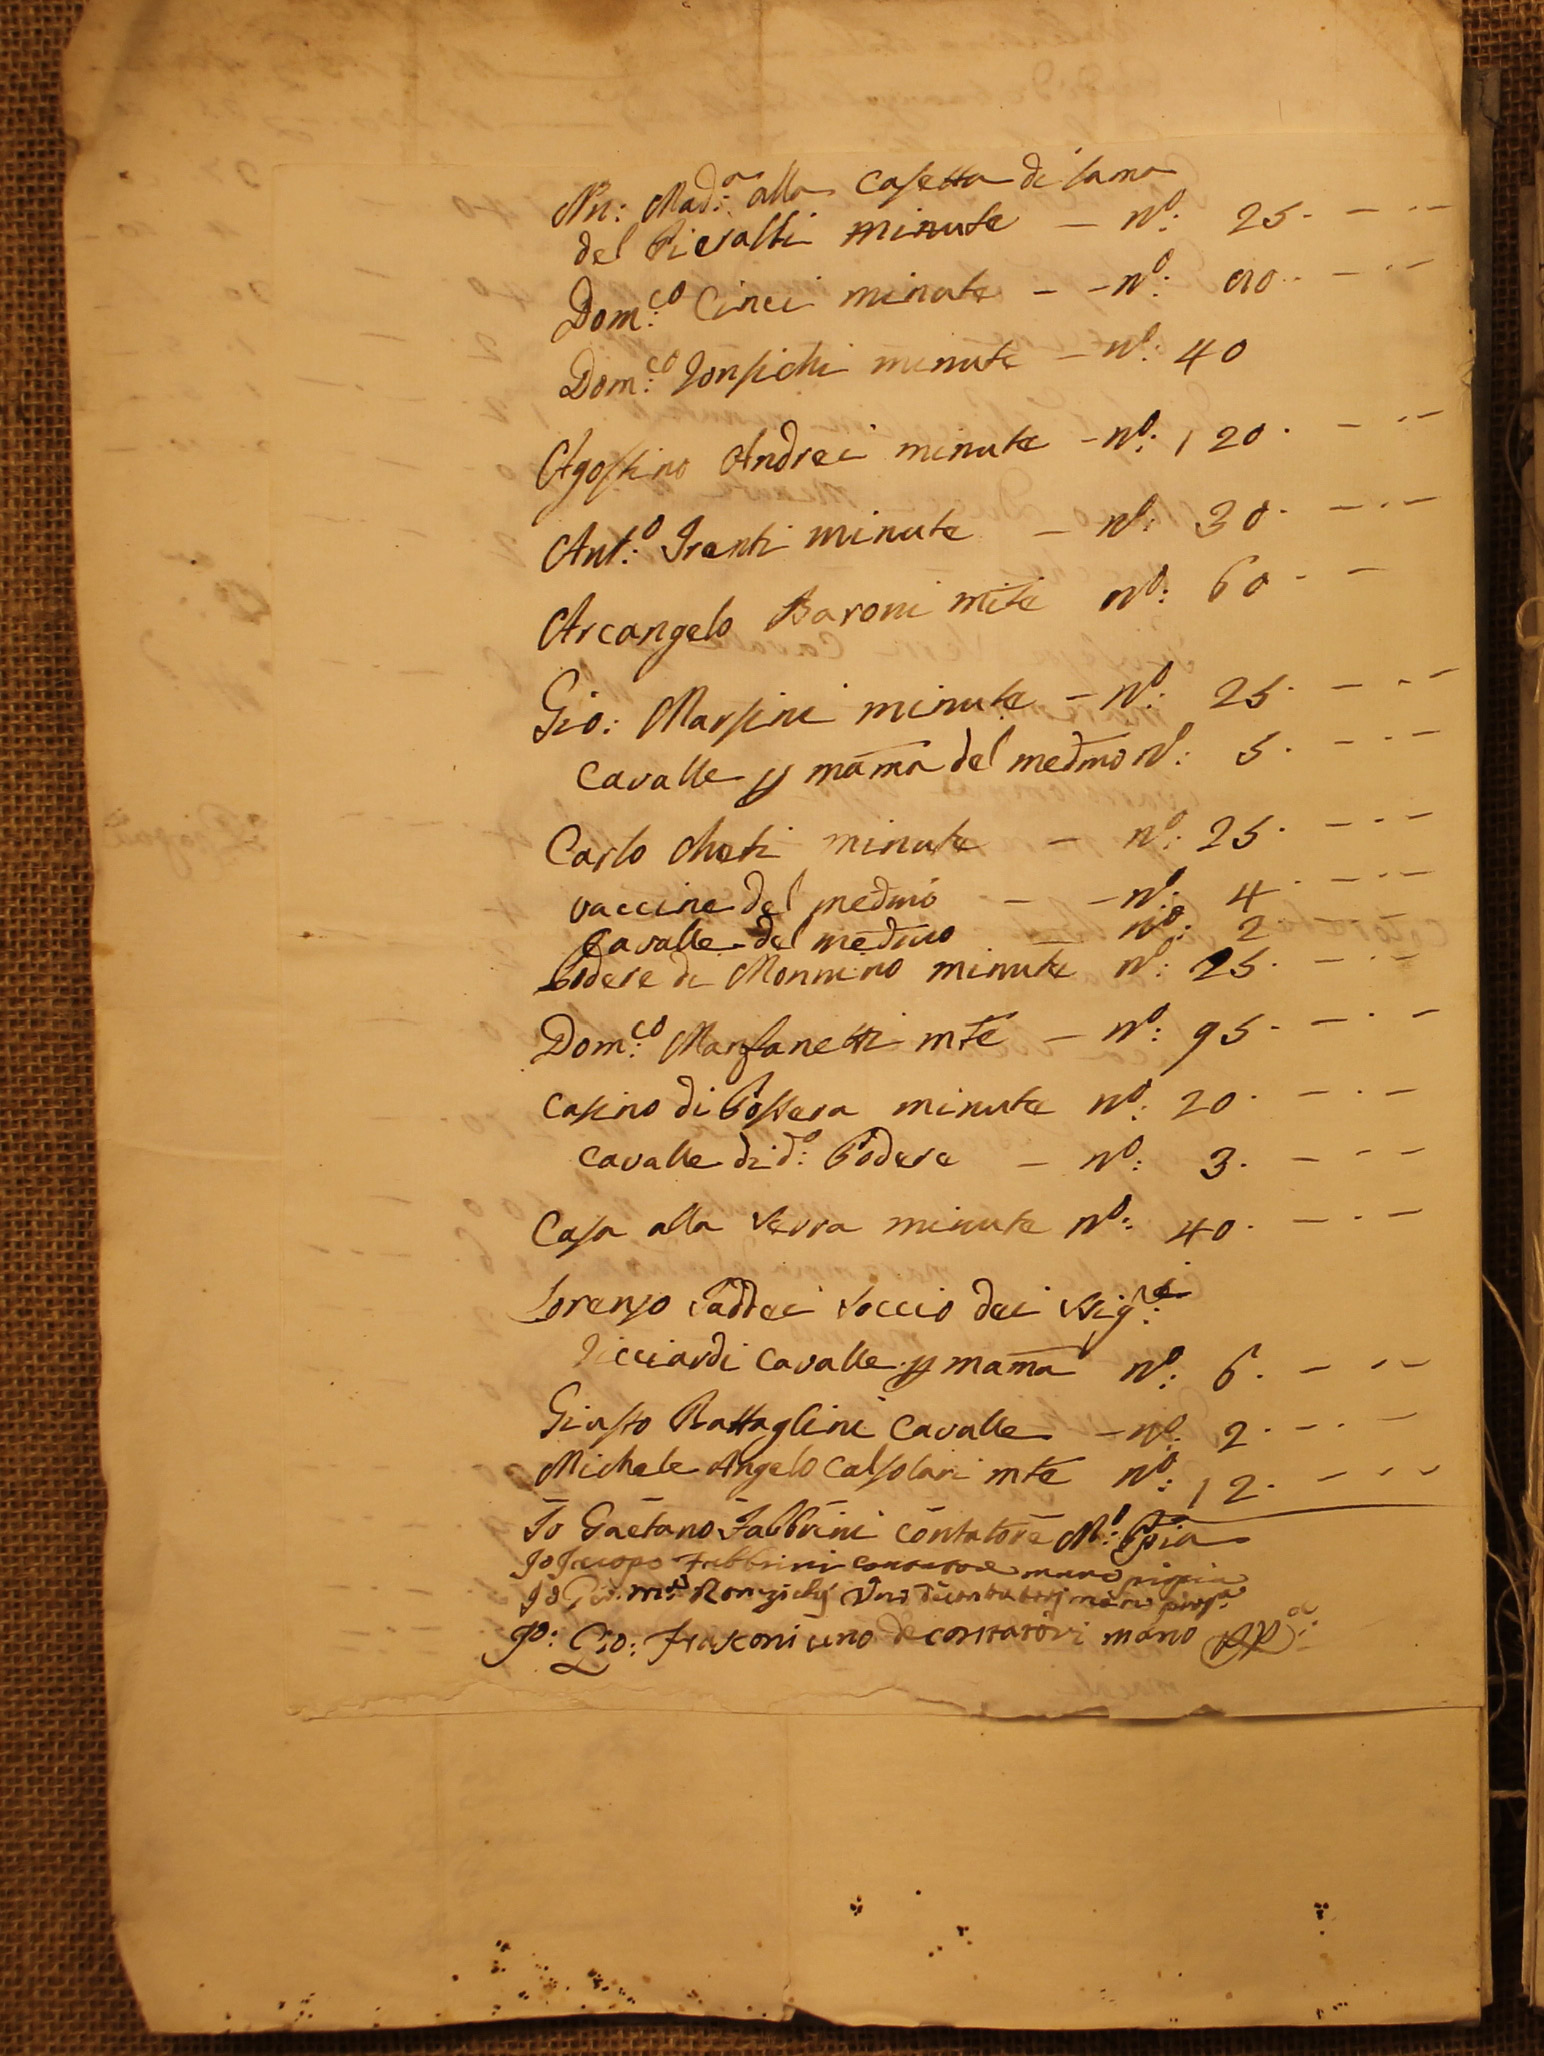 alla Casetta di Lama
del Pieralli minute — N.o: 25. — . . —
Dom:co Cinci minute — — N.o: 90. — . . —
Dom:co minute — N.o: 40
Agostino Andrei minute — N.o: 120. — . . —
Ant:o minute — N.o: 30. — . . —
Arcangelo Baroni mite N.o: 60. — —
Gio: Marsini minute — N.o: 25. — . . —
Cavalle p mama del medmo N.o: 5. — . —
Carlo minute — N.o: 25. — . —
vaccine del medmo — — N.o: 4. — . —
Cavalle del medmo — N.o: 2
Podere di Monnino minute N.o: 25. — . —
Dom:co Manfanetti mte — N.o: 95. — . —
Casino di Possera minute N.o: 20. — . —
Cavalle di d:o Podere — N.o: 3. — . —
Casa alla Serra minute N.o: 40. — . —
Lorenzo Taddei Soccio dei Sig:ri
Ricciardi Cavalle p mama N.o: 6. — . —
Giusto Battaglini Cavalle — N.o: 2. — . —
Michele Angelo Calsolari mte N.o: 12. — . . —
Io Gaetano Fabbrini Contatore M:o Ppia
Io Jacopo Fabbrini contatore mano propia
Io Gio: uno de contatori mano prop:a
Io: Gio: Frasconi uno de contatori mano PP:a